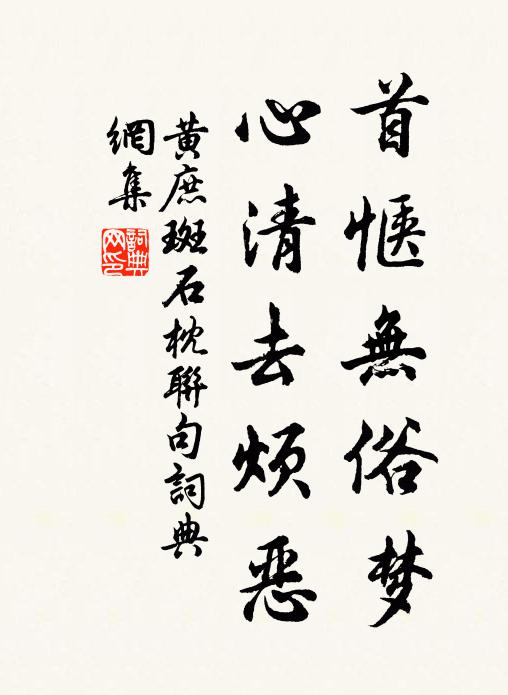 首惬無俗梦
心清去烦恶
黄庶斑石枕聯句詞典
網集
詞典网印